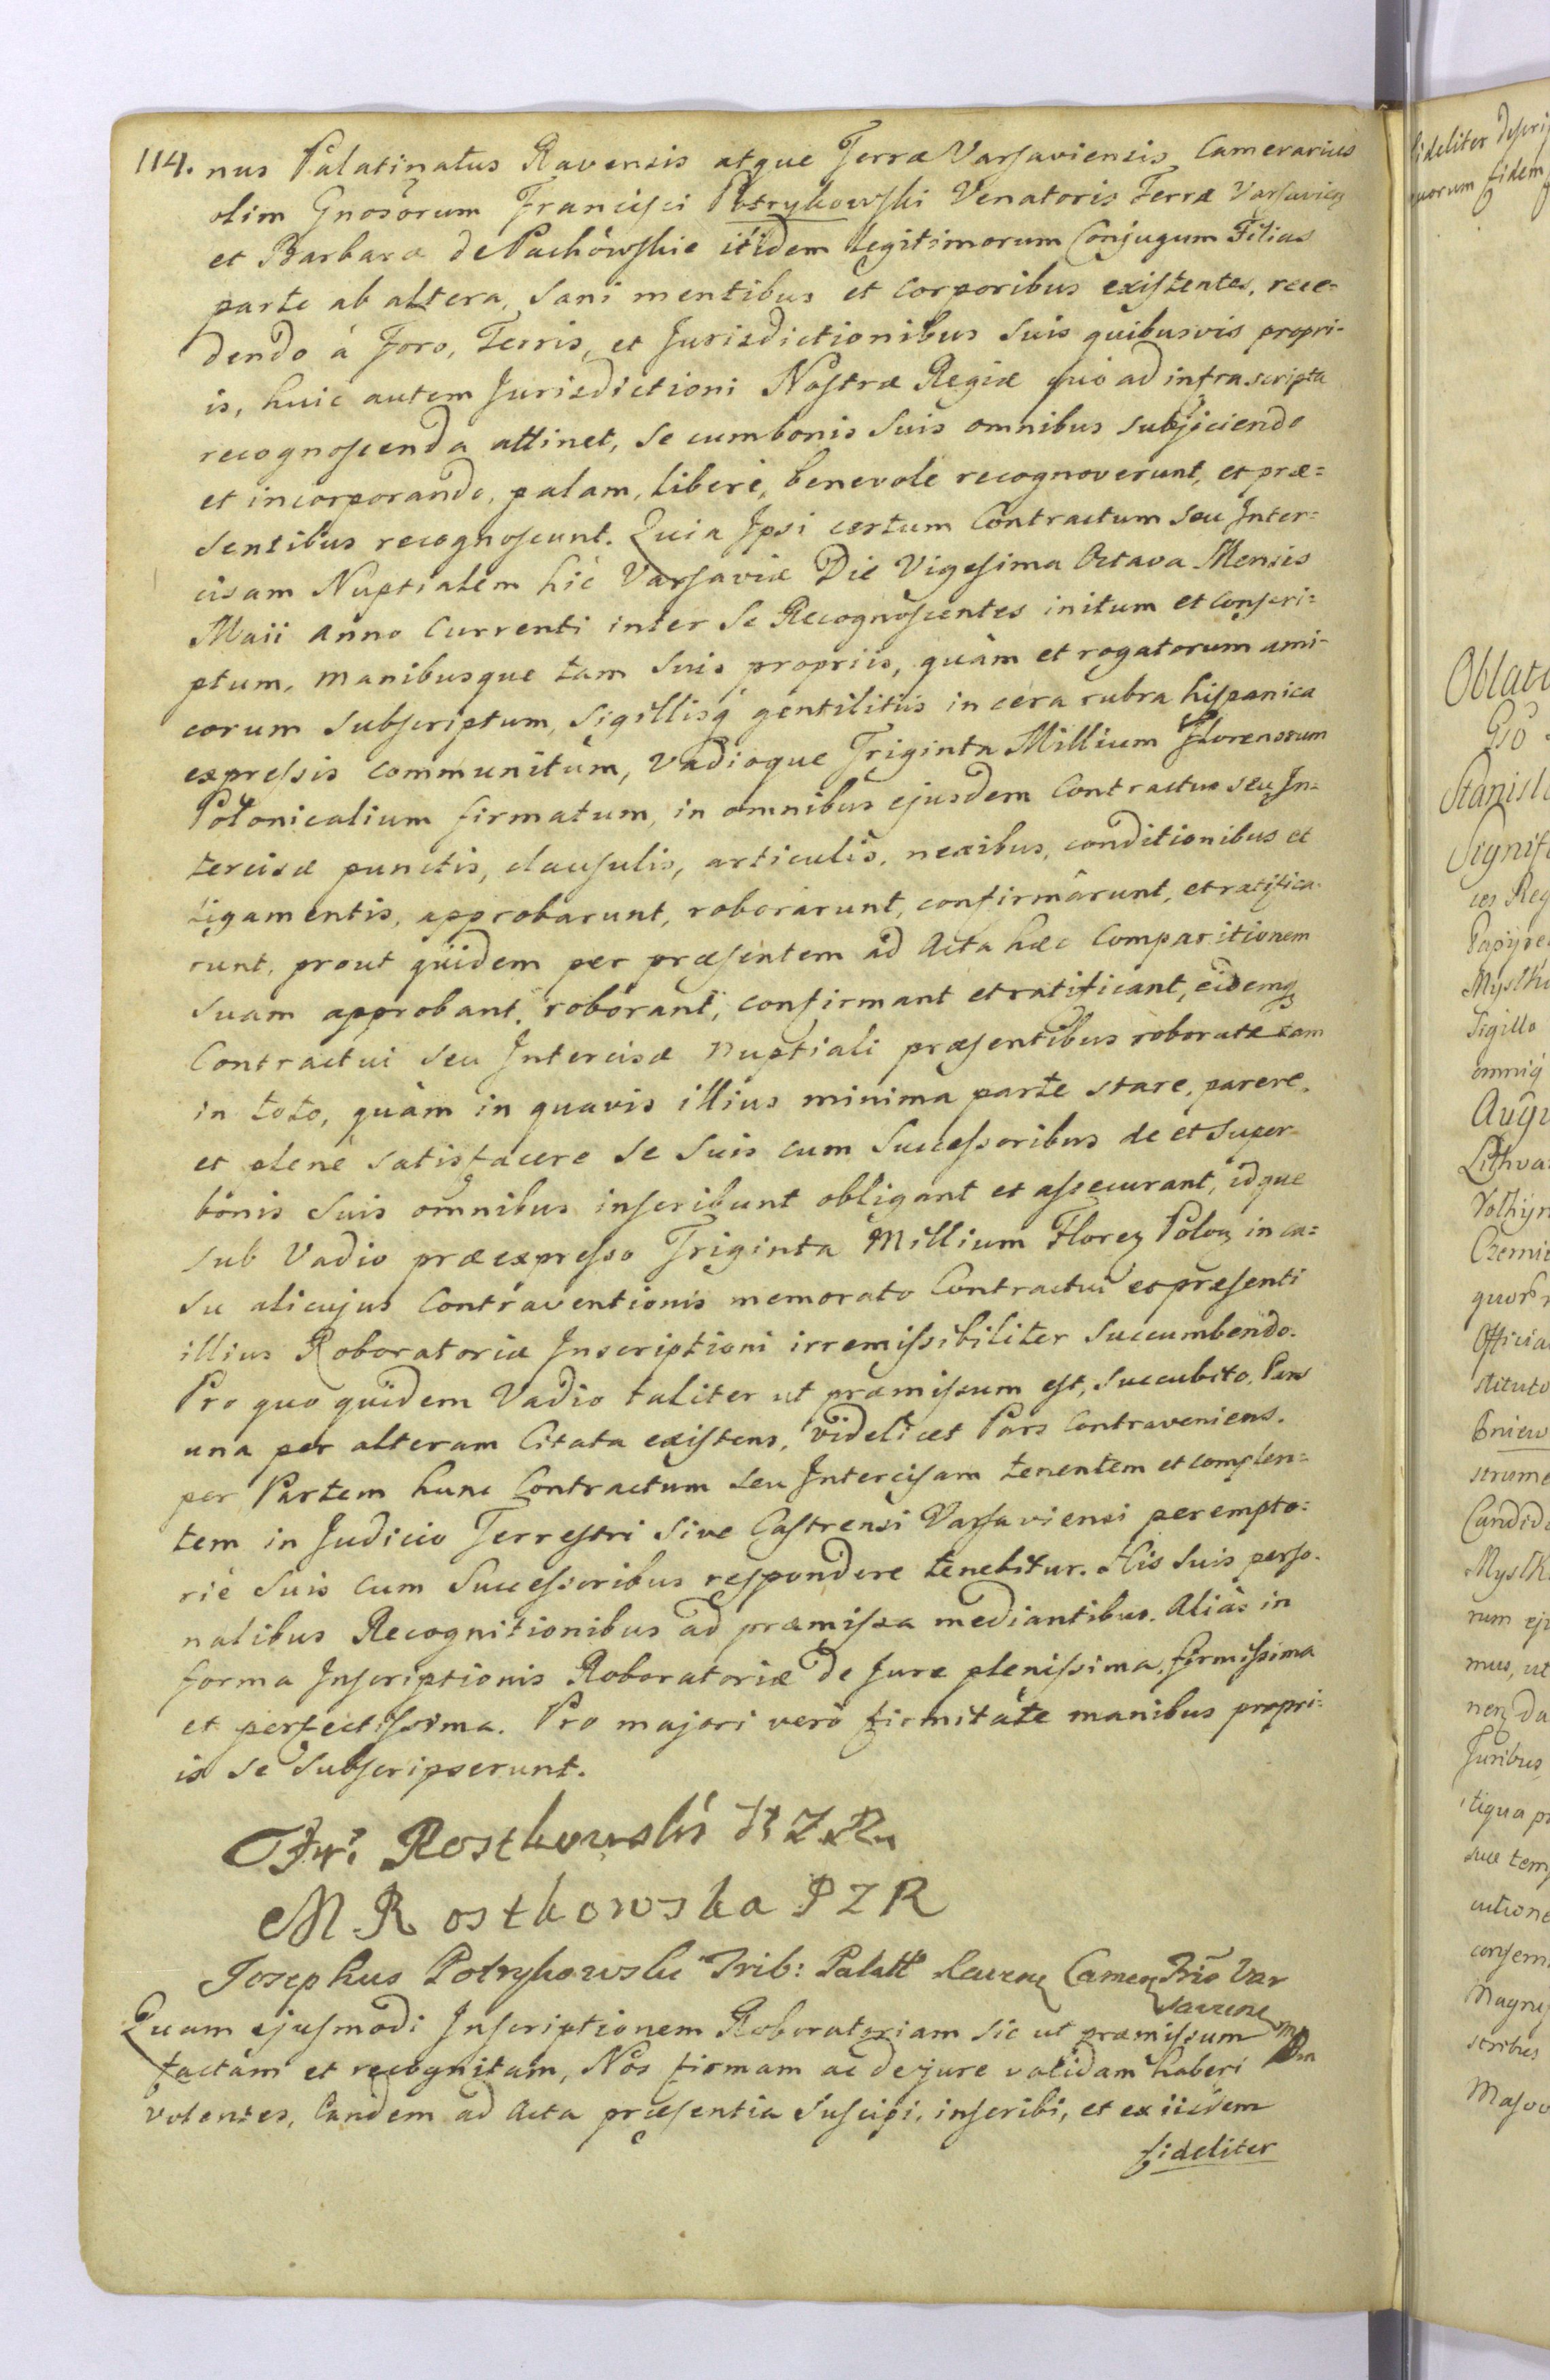 114. nus Palatinatus Ravensis atque Terræ Varsaviensis Camerarius
olim Gnosorum Francisci Potrykowski Venatoris Terræ Varsavien
et Barbaræ de Pachowskie itidem legitimorum Conjugum Filias
parte ab altera, Sani mentibus et Corporibus existentes, rece=
dendo à Foro, Terris, et Jurisdictionibus Suis quibusvis propri-
is, huic autem Jurisdictioni Nostræ Regiæ quo ad infrascripta
recognoscenda attinet, Se cum bonis Suis omnibus subjiciendo
et incorporando, palam, liberè, benevole recognoverunt, et præ=
sentibus recognoscunt. Quia Ipsi certum Contractum seu Inter=
cisam Nuptialem hic Varsaviæ Die Vigesima Octava Mensis
Maii Anno Currenti inter Se Recognoscentes initum et Conscri=
ptum, manibusque tam Suis propriis, quàm et rogatorum ami-
corum Subscriptum, Sigillisq gentilitiis in cera rubra hispanica
expressis communitum, Vadioque Triginta Millium Florenorum
Polonicalium firmatum, in omnibus ejusdem Contractus seu In=
tercisæ punctis, clausulis, articulis, nexibus, conditionibus et
Ligamentis, approbarunt, roborarunt, confirmârunt, et ratifica-
runt, prout quidem per præsentem ad Acta hæc Comparitionem
Suam approbant, roborant, confirmant et ratificant, eidemq
Contractui seu Intercisæ Nuptiali præsentibus roboratæ tam
in toto, quàm in quavis illius minima parte stare, parere,
et plenè satisfacere se Suis cum Successoribus de et super
bonis Suis omnibus inscribunt obligant et assecurant, idque
sub Vadio præexpresso Triginta Millium Floren Polon in ca=
su alicujus Contraventionis memorato Contractui et præsenti
illius Roboratoriæ Inscriptioni irremissibiliter Succumbendo.
Pro quo quidem Vadio taliter ut præmissum est, Succubito, Pars
una per alteram Citata existens, videlicet Pars Contraveniens.
per Partem hunc Contractum seu Intercisam tenentem et complen=
tem in Judicio Terrestri Sive Castrensi Varsaviensi perempto=
riè Suis cum Successoribus respondere tenebitur. His Suis perso-
nalibus Recognitionibus ad præmissa mediantibus. Aliàs in
forma Inscriptionis Roboratoriæ de Jure plenissima, firmissima
et perfectissima. Pro majori verò firmitate manibus propri=
is Se Subscripserunt.
Rostkowski
M Rostkowska P Z R
Josephus Potrykowski Trib: Palatt Raven Camer Trio Var
saviene
Quam ejusmodi Inscriptionem Roboratoriam sic ut præmissum
factam et recognitam, Nos firmam ac de jure validam haberi
volentes, Eandem ad Acta præsentia Suscipi, inscribi, et ex iisdem
fideliter
fideliter
quorum fidem
Oblata
Stanisl
Signif
Mysth
Sigillo
Augu
Lithva
Volhyn
Czernie
Officia
stituto
Candida
mus, ut
Juribus,
itiqua
sue tem
cutione
Magnif
stribus
Masov